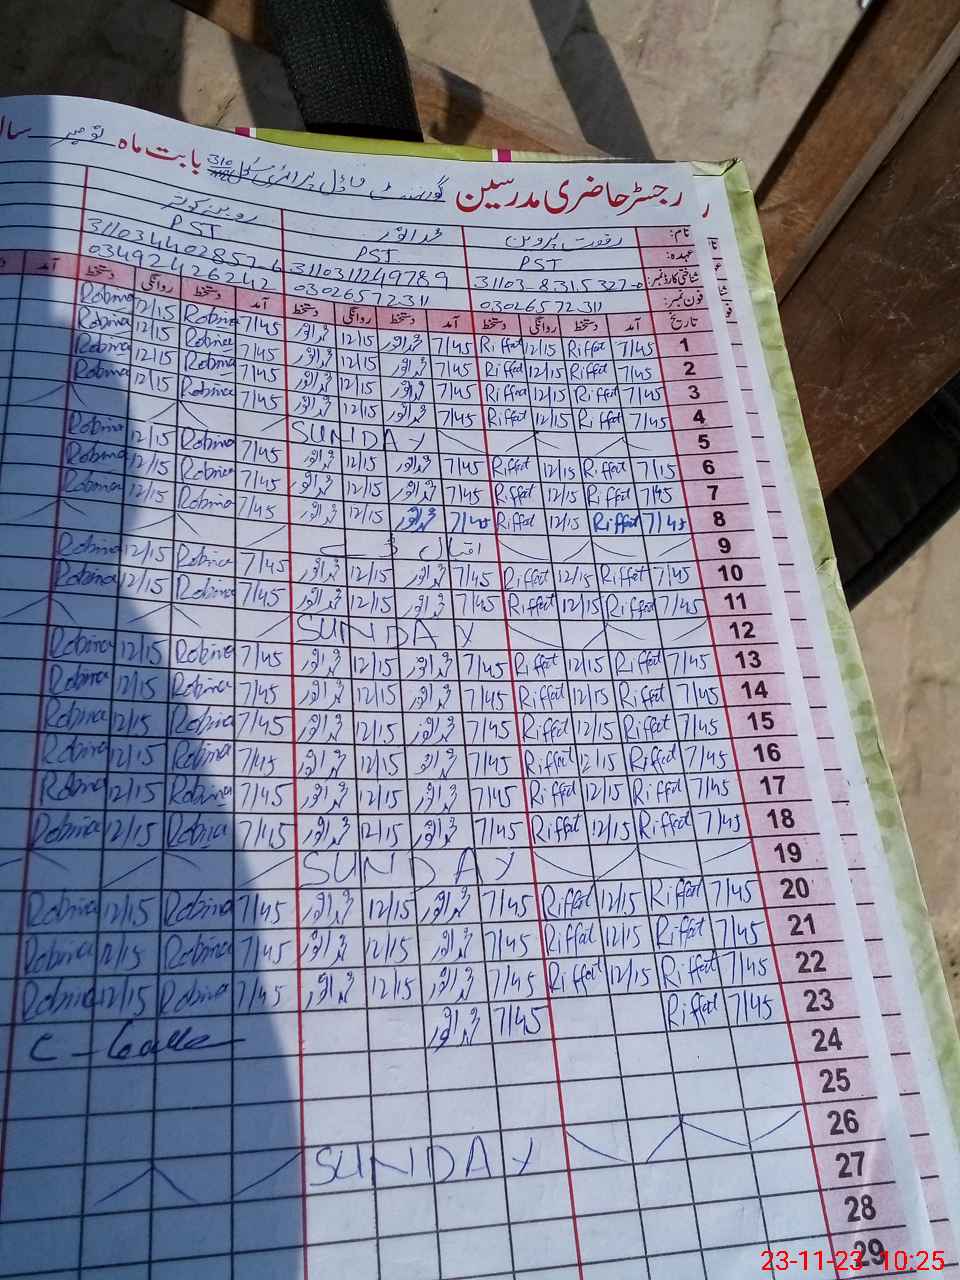 رجسٹر حاضری مدرسین گورنمنٹ ماڈل پرائمری سکول 310 بابت ماہ نومبر سال
نام: رفعت پروین محمد انور روبینہ کوثر
عہدہ: PST PST PST
شناختی کارڈ نمبر: 31103-8315327-0 3110311249789 311034402857-6
فون نمبر: 03026572311 03026572311 03492426242
تاریخ آمد دستخط روانگی دستخط آمد دستخط روانگی دستخط آمد دستخط روانگی دستخط آمد
1 7/45 Riffat 12/15 Riffat 7/45 محمد انور 12/15 محمد انور 7/45 Robina 12/15 Robina
2 7/45 Riffat 12/15 Riffat 7/45 محمد انور 12/15 محمد انور 7/45 Robina 12/15 Robina
3 7/45 Riffat 12/15 Riffat 7/45 محمد انور 12/15 محمد انور 7/45 Robina 12/15 Robina
4 7/45 Riffat 12/15 Riffat 7/45 محمد انور 12/15 محمد انور 7/45 Robina 12/15 Robina
5 SUNDAY
6 7/15 Riffat 12/15 Riffat 7/45 محمد انور 12/15 محمد انور 7/45 Robina 12/15 Robina
7 7/45 Riffat 12/15 Riffat 7/45 محمد انور 12/15 محمد انور 7/45 Robina 12/15 Robina
8 7/45 Riffat 12/15 Riffat 7/45 محمد انور 12/15 محمد انور 7/45 Robina 12/15 Robina
9 اقبال ڈے
10 7/45 Riffat 12/15 Riffat 7/45 محمد انور 12/15 محمد انور 7/45 Robina 12/15 Robina
11 7/45 Riffat 12/15 Riffat 7/45 محمد انور 12/15 محمد انور 7/45 Robina 12/15 Robina
12 SUNDAY
13 7/45 Riffat 12/15 Riffat 7/45 محمد انور 12/15 محمد انور 7/45 Robina 12/15 Robina
14 7/45 Riffat 12/15 Riffat 7/45 محمد انور 12/15 محمد انور 7/45 Robina 12/15 Robina
15 7/45 Riffat 12/15 Riffat 7/45 محمد انور 12/15 محمد انور 7/45 Robina 12/15 Robina
16 7/45 Riffat 12/15 Riffat 7/45 محمد انور 12/15 محمد انور 7/45 Robina 12/15 Robina
17 7/45 Riffat 12/15 Riffat 7/45 محمد انور 12/15 محمد انور 7/45 Robina 12/15 Robina
18 7/45 Riffat 12/15 Riffat 7/45 محمد انور 12/15 محمد انور 7/45 Robina 12/15 Robina
19 SUNDAY
20 7/45 Riffat 12/15 Riffat 7/45 محمد انور 12/15 محمد انور 7/45 Robina 12/15 Robina
21 7/45 Riffat 12/15 Riffat 7/45 محمد انور 12/15 محمد انور 7/45 Robina 12/15 Robina
22 7/45 Riffat 12/15 Riffat 7/45 محمد انور 12/15 محمد انور 7/45 Robina 12/15 Robina
23 7/45 Riffat 7/45 محمد انور C-
24
25
26 SUNDAY
27
28
29
23-11-23 10:25